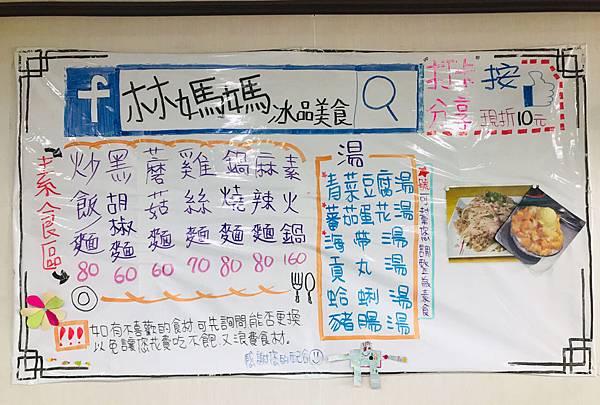 f 林媽媽 冰品美食
"打卡" 按
分享 現折10元
素食區
炒飯麵 80
黑胡椒麵 60
蘑菇麵 60
雞絲麵 70
鍋燒麵 80
麻辣麵 80
素火鍋 160
湯
青菜豆腐湯
蕃茄蛋花湯
海帶湯
貢丸湯
蛤蜊湯
豬腸湯
!!!
如有不喜歡的食材可先詢問能否更換
以免讓您花費吃不飽又浪費食材。
感謝您的配合